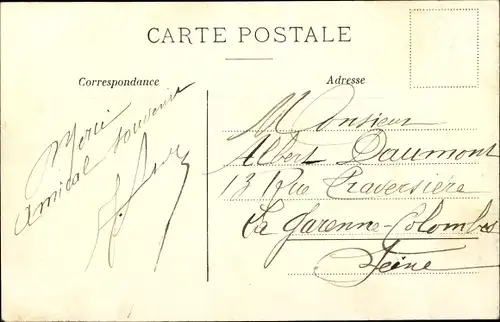 CARTE POSTALE
Correspondance
Merci
Amical souvenir
Adresse
Monsieur
Albert Daumont
13 Rue Traversière
La Garenne-Colombes
Seine